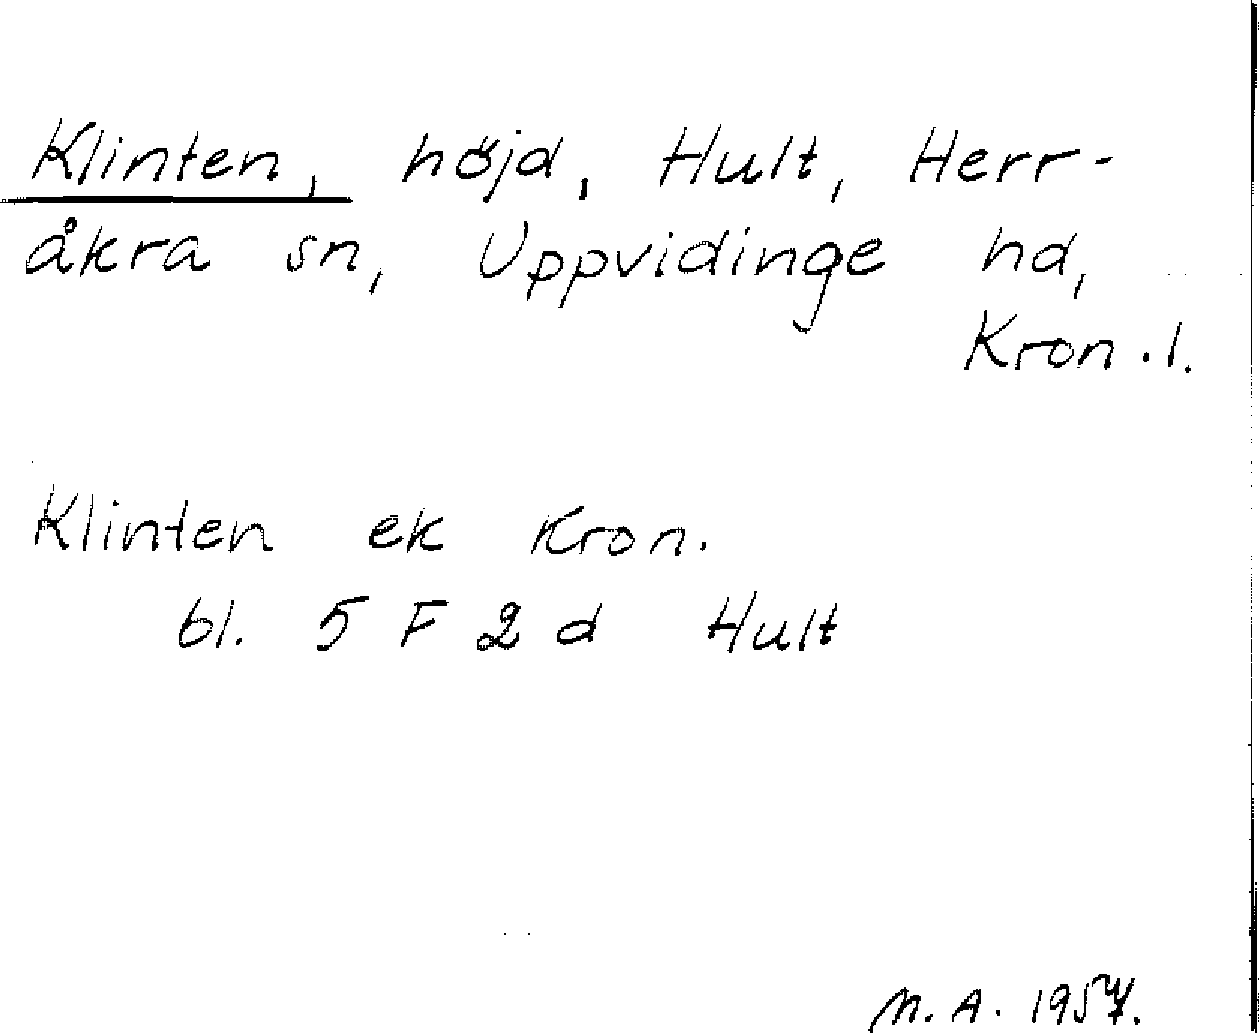 Klinten, höjd, Hult, Herr-
åkra sn, Uppvidinge hd,
Kron.l.
Klinten ek Kron.
bl. 5 F 2 d Hult
M. A. 1957.